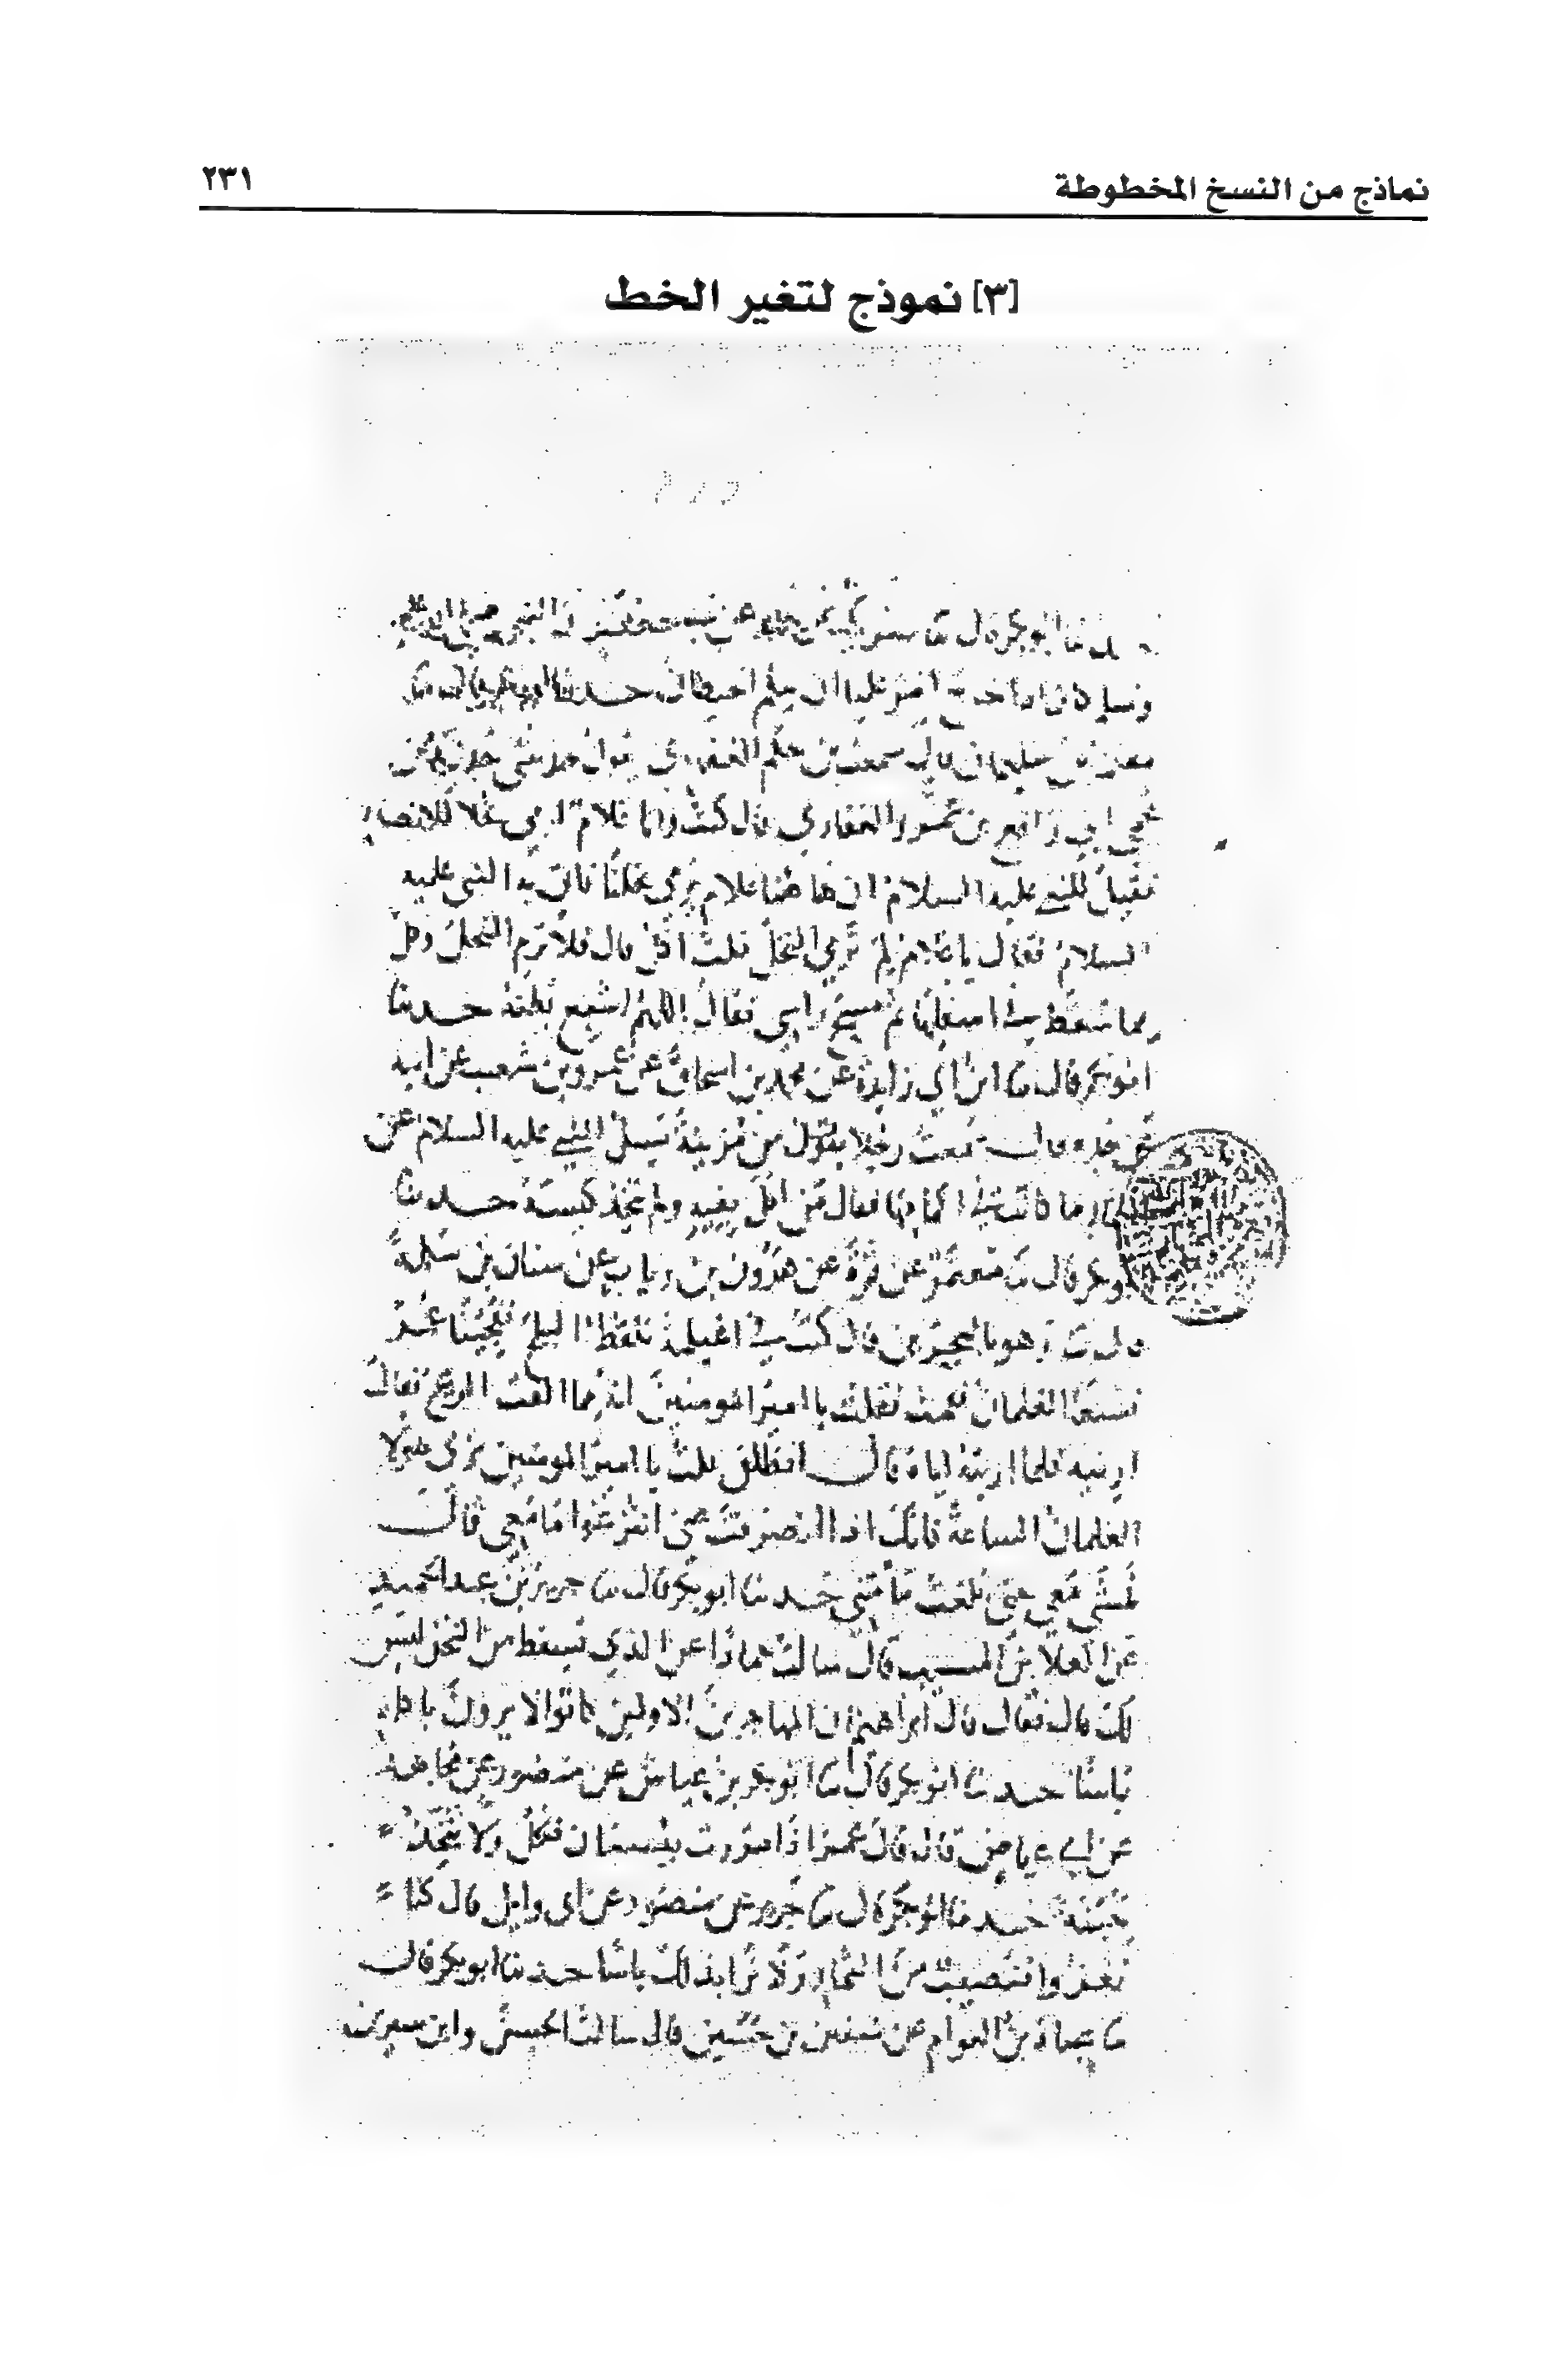 نماذج من النسخ المخطوطة
٢٣١
[٣] نموذج لتغير الخط
ابو بكر قال عن
وسلم
معتمر بن سليمان قال سمعت بن حكم الغفاري يقول حدثتني جدتي عن
عم ابي رافع بن عمرو الغفاري قال كنت وانا غلام ارمي نخلا للانصار
فقيل للنبي عليه السلام ان هاهنا غلام يرمي نخلنا فاتي به النبي عليه
السلام فقال يا غلام لم ترمي النخل قلت اكل قال فلا ترم النخل وكل
مما سقط في اسفلها ثم مسح راسي فقال اللهم اشبع بطنه حدثنا
ابو بكر قال ثنا ابن ابي زايدة عن محمد بن اسحاق عن عمرو بن شعيب عن ابيه
عن جده قال سمعت رجلا من مزينة يسل النبي عليه السلام عن
الثمار ما كان في اكمامها فقال من اكل بفيه ولم يتخذ خبنة حدثنا
ابو بكر قال ثنا معتمر عن قرة عن هرون بن رياب عن سنان بن سلمة
قال وهو بالبحرين قال كنت في اغيلمة نلقط البلح ففجئنا عمر
فسعا الغلمان وقمت فقلت يا امير المومنين انه مما القت الريح فقال
ارنيه فلما اريته اياه قال انطلق قلت يا امير المومنين ترى هولا
الغلمان الساعة فانك اذا انصرفت عني انتزعوا ما معي قال
فمشى معي حتى بلغت مامني حدثنا ابو بكر قال ثنا جرير بن عبد الحميد
عن العلا بن المسيب قال سالت حمادا عن الذي يسقط من النخل ليس
لك قال فقال قال ابراهيم ان المهاجرين الاولين كانوا لا يرون باكله
باسا حدثنا ابو بكر قال ثنا ابو بكر بن عياش عن منصور عن مجاهد
عن ابي عياض قال قال عمر اذا مررت ببستان فكل ولا تتخذ
خبنة حدثنا ابو بكر قال ثنا جرير عن منصور عن ابي وايل قال كنا
نغزوا فنصيب من الثمار ولا نرا بذلك باسا حدثنا ابو بكر قال
ثنا عباد بن العوام عن سفين بن حسين قال سالت الحسن وابن سيرين